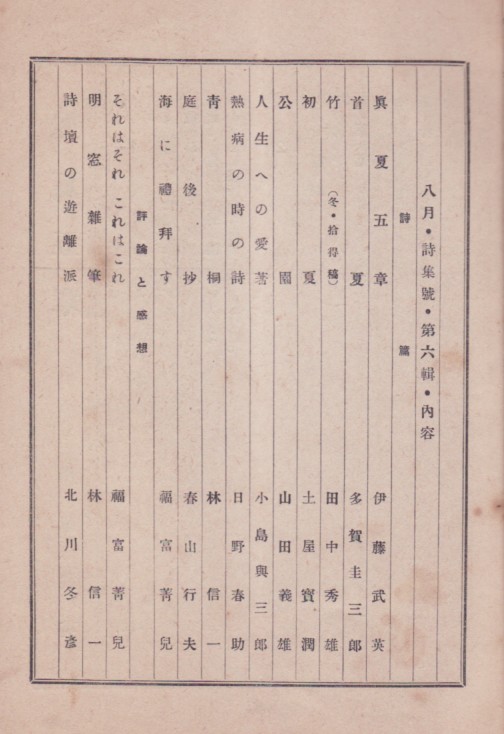 八月・詩集號・第六輯・內容
詩篇
眞夏五章 伊藤武英
首夏 多賀圭三郎
竹(冬・拾得稿) 田中秀雄
初夏 土屋寶潤
公園 山田義雄
人生への愛著 小島與三郎
熱病の時の詩 日野春助
靑桐 林信一
庭後抄 春山行夫
海に禮拜す 福富菁兒
評論と感想
それはそれ これはこれ 福富菁兒
明窓雜筆 林信一
詩壇の遊離派 北川冬彥